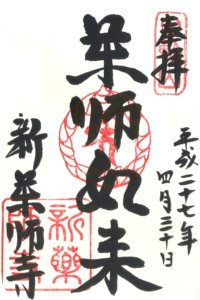 奉拝
平成二十七年
四月三十日
薬師如来
新薬師寺
新薬